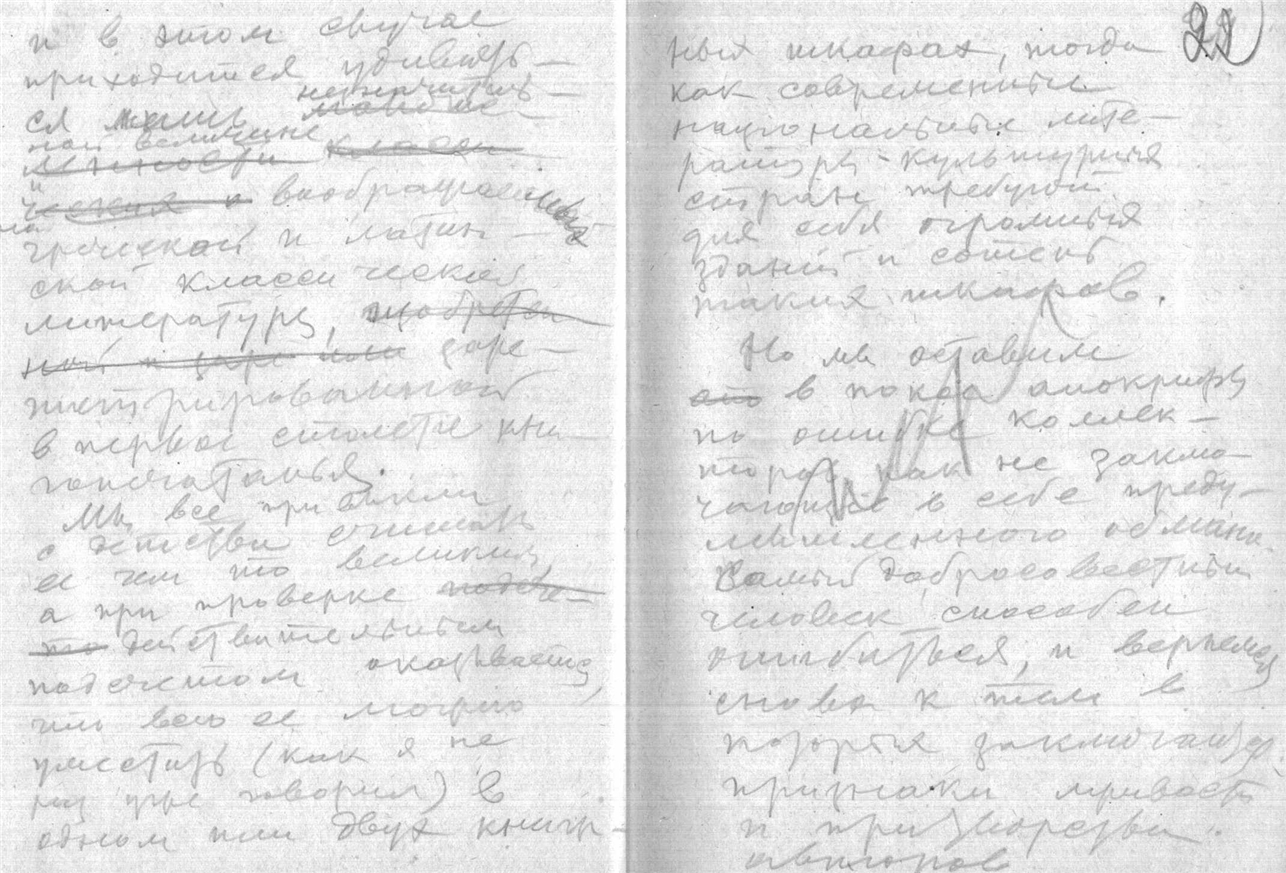 и в этом случае
приходится удивлять-
ся лишь незначитель-
ной величине
и воображаемых
греческой и латин-
ской классической
литературы, изобретен
ной и заре-
гистрированной
в первое столетие кни-
гопечатанья.
Мы все привыкли
с детства считать
ее чем то великим,
а при проверке
то действительным
подсчетом оказывается,
что всю ее можно
уместить (как я не
раз уже говорил) в
одном или двух книж-
22
ных шкафах, тогда
как современные
национальные лите-
ратуры культурных
стран требуют
для себя огромных
зданий и сотен
таких шкафов.
Но мы оставим
его в покое апокрифы
по ошибке коллек-
торов, как не заклю-
чающие в себе преду-
мышленного обмана.
Самый добросовестный
человек способен
ошибиться, и вернемся
снова к тем в
которых заключаются
признаки
и притворства
авторов